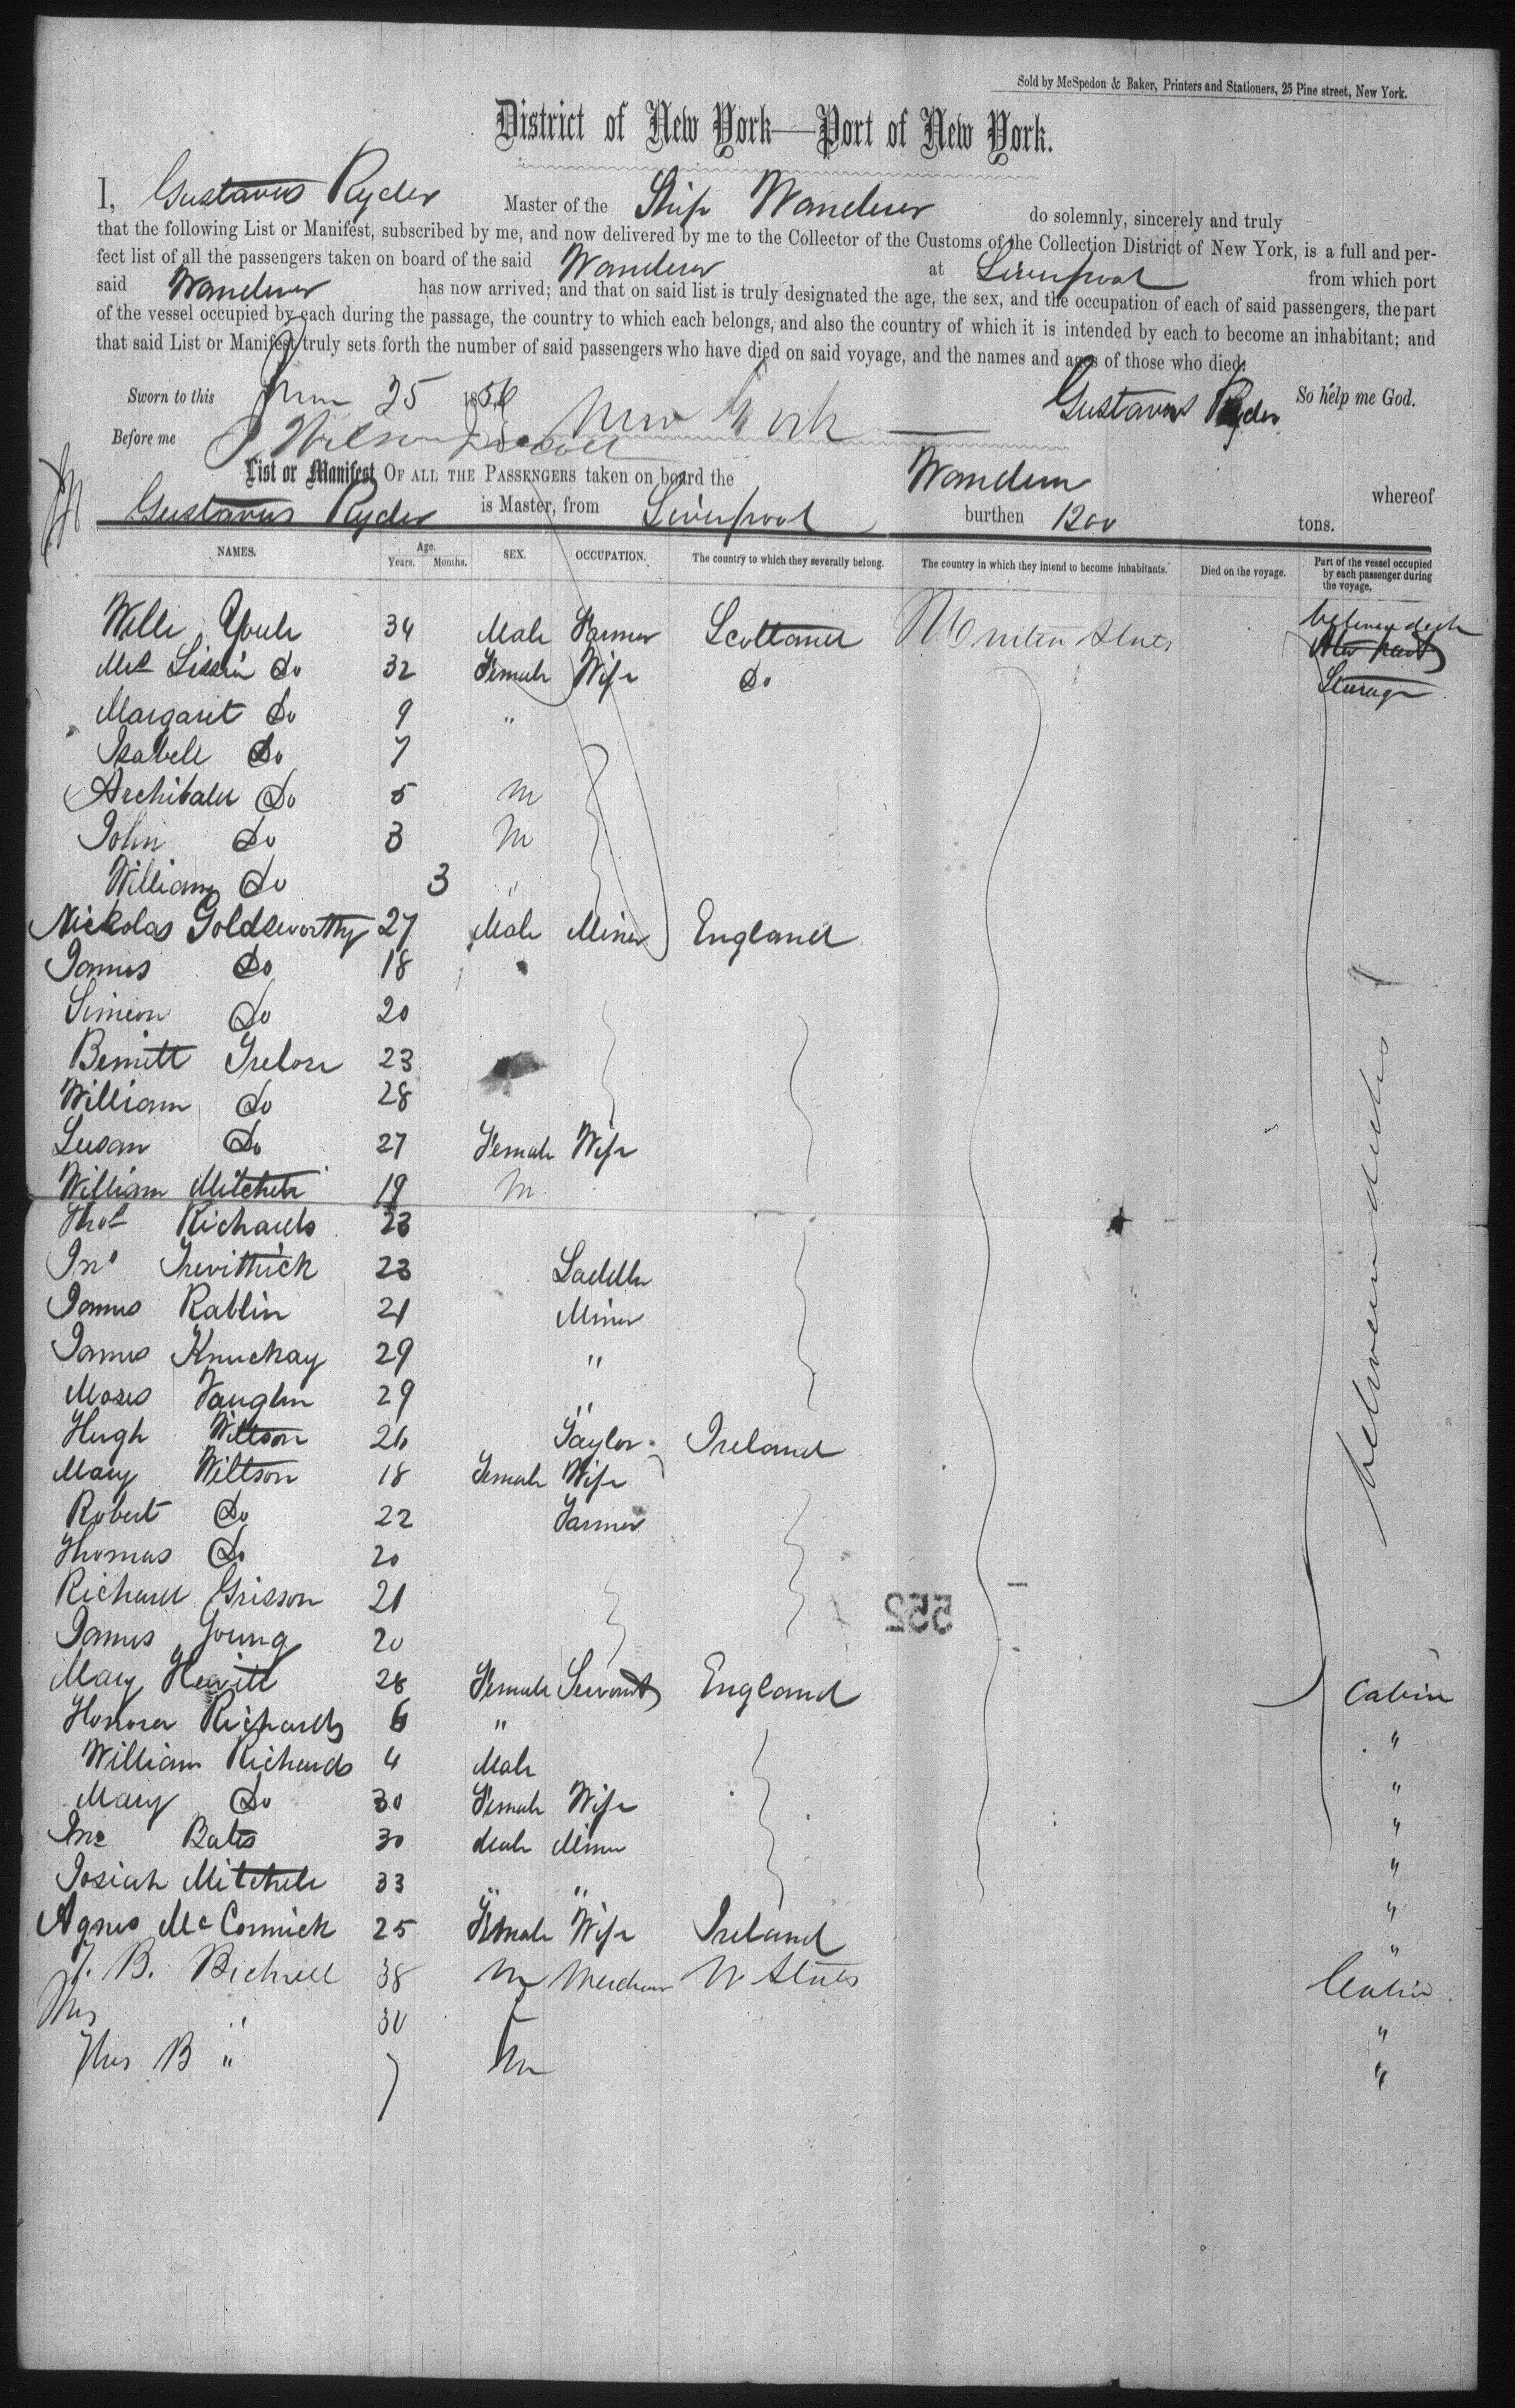 Sold by McSpedon & Baker, Printers and Stationers, 25 Pine street, New York.
District of New York—Port of New York.
I, Gustavus Ryder Master of the Ship Wanderer do solemnly, sincerely and truly
that the following List or Manifest, subscribed by me, and now delivered by me to the Collector of the Customs of the Collection District of New York, is a full and per-
fect list of all the passengers taken on board of the said Wanderer at Liverpool from which port
said Wanderer has now arrived; and that on said list is truly designated the age, the sex, and the occupation of each of said passengers, the part
of the vessel occupied by each during the passage, the country to which each belongs, and also the country of which it is intended by each to become an inhabitant; and
that said List or Manifest truly sets forth the number of said passengers who have died on said voyage, and the names and ages of those who died.
Sworn to this June 25 1856 New York Gustavus Ryder So help me God.
Before me
List or Manifest OF ALL THE PASSENGERS taken on board the Wanderer whereof
Gustavus Ryder is Master, from Liverpool burthen 1200 tons.
NAMES. Age. Years. Months. SEX. OCCUPATION. The country to which they severally belong. The country in which they intend to become inhabitants. Died on the voyage. Part of the vessel occupied by each passenger during the voyage.
Willi Youle 34 Male Farmer Scotland United States between deck
Mrs Do 32 Female Wife Do Steerage
Margaret Do 9 "
Isabell Do 7
Archibald Do 5 M
John Do 3 M
William Do 3 "
Nickolas Goldsworthy 27 Male Miner England
James Do 18
Simeon Do 20
Bennitt Trelore 23
William Do 28
Susan Do 27 Female Wife
William Mitchell 19 M
Thos Richards 23
Jno Trevithick 23 Saddler
James Rablin 21 Miner
James Knuckay 29 "
Moses Vaughn 29 "
Hugh Willson 26 Taylor Ireland
Mary Willson 18 Female Wife
Robert Do 22 Farmer
Thomas Do 20
Richard Grisson 21
James Young 20
between decks
Mary Hewitt 28 Female Servant England Cabin
Honora Richards 6 " "
William Richards 4 Male "
Mary Do 30 Female Wife "
Jno Bates 30 Male Miner "
Josiah Mitchell 33 " " "
Agnes McCormick 25 Female Wife Ireland "
J. B. Bicknell 38 M Merchant U States Cabin
Mrs " 30 F "
Thos B " 7 M "